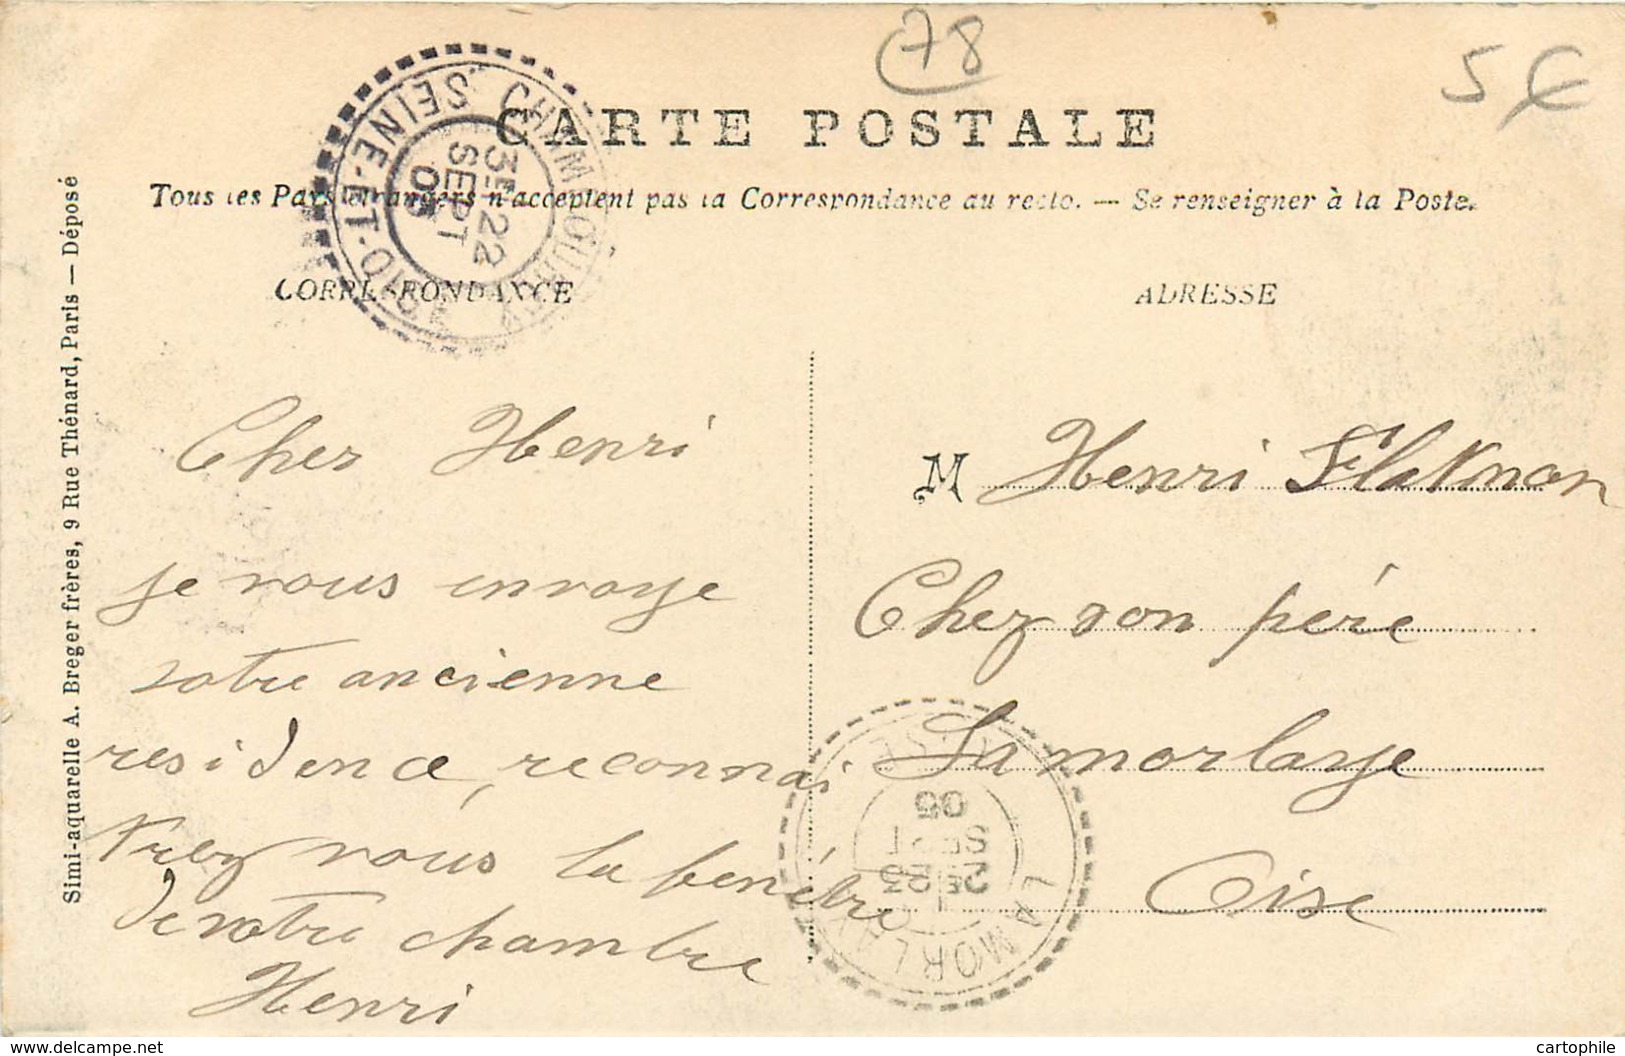 78
5€
CARTE POSTALE
Tous les Pays étrangers n'acceptent pas la Correspondance au recto. — Se renseigner à la Poste.
CORRESPONDANCE
ADRESSE
Simi-aquarelle A. Breger frères, 9 Rue Thénard, Paris — Déposé
SEINE-ET-OISE
3E 22
SEPT
05
Cher Henri
je vous envoye
votre ancienne
residence, reconnai
trez vous la fenêtre
de votre chambre
Henri
M Henri
Chez son père
Lamorlaye
Oise
LA MORLAYE
OISE
2E 23
SEPT
05
delcampe.net
cartophile